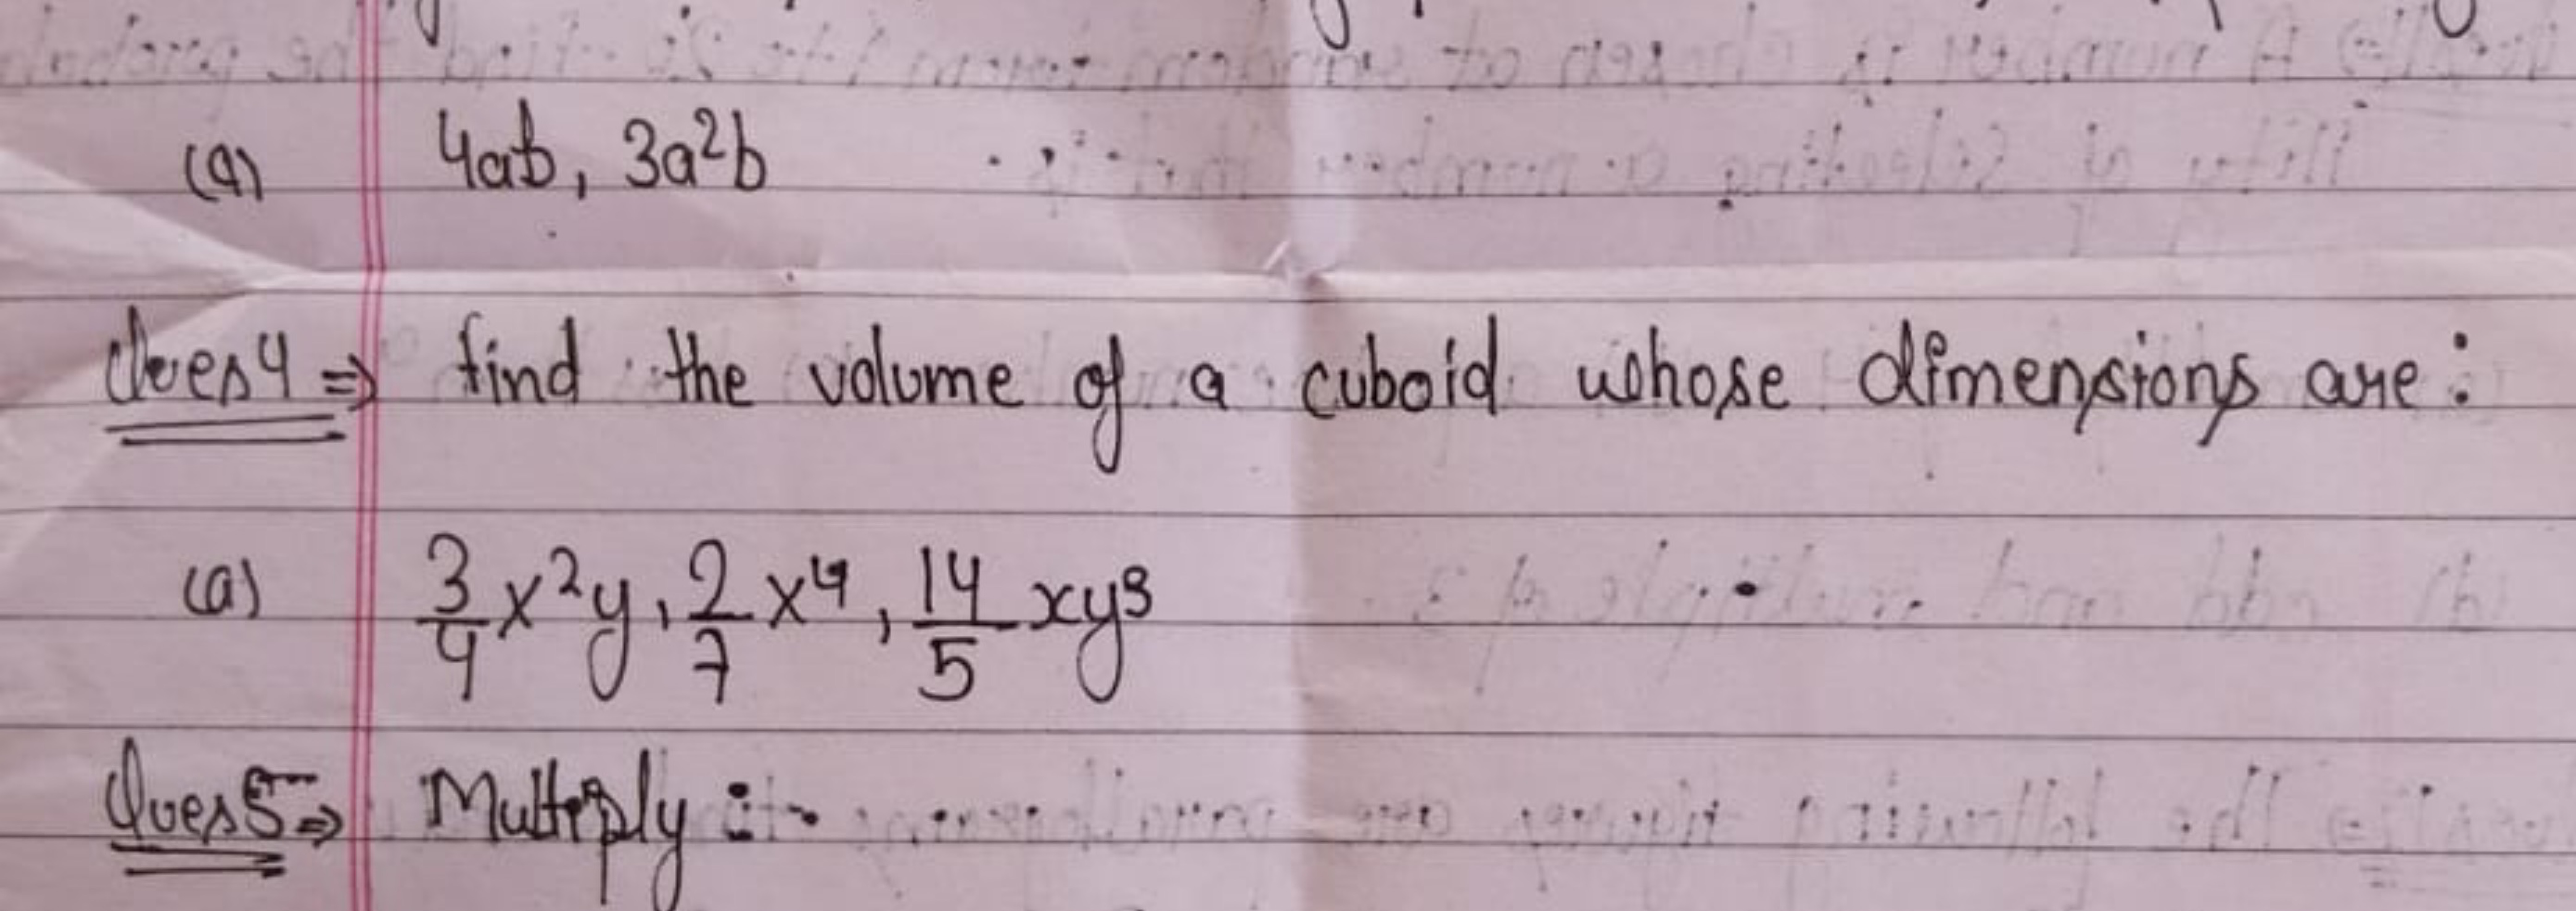 (a) 4ab, 3a²b
Ques 4 ⇒ find the volume of a cuboid whose dimensions are:
(a) 3/4 x²y, 2/7 x⁴, 14/5 xy³
Ques 5 ⇒ Multiply :-